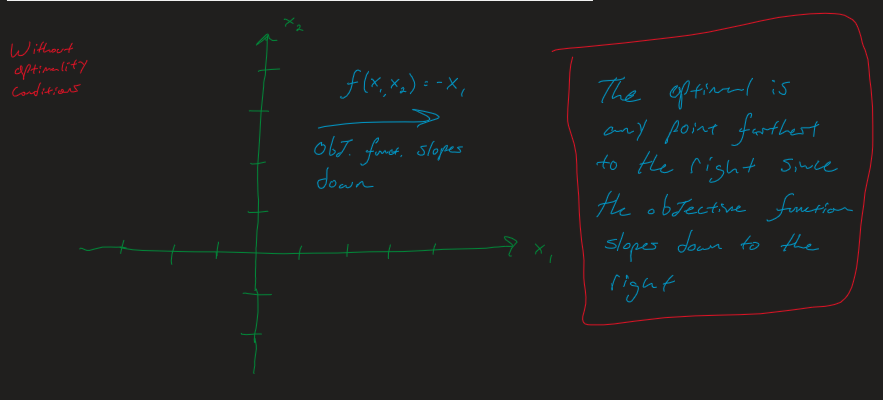 Without
optimality
Conditions
x₂
f(x₁,x₂) = -x₁
Obj. funct. slopes
down
x₁
The optimal is
any point farthest
to the right since
the objective function
slopes down to the
right